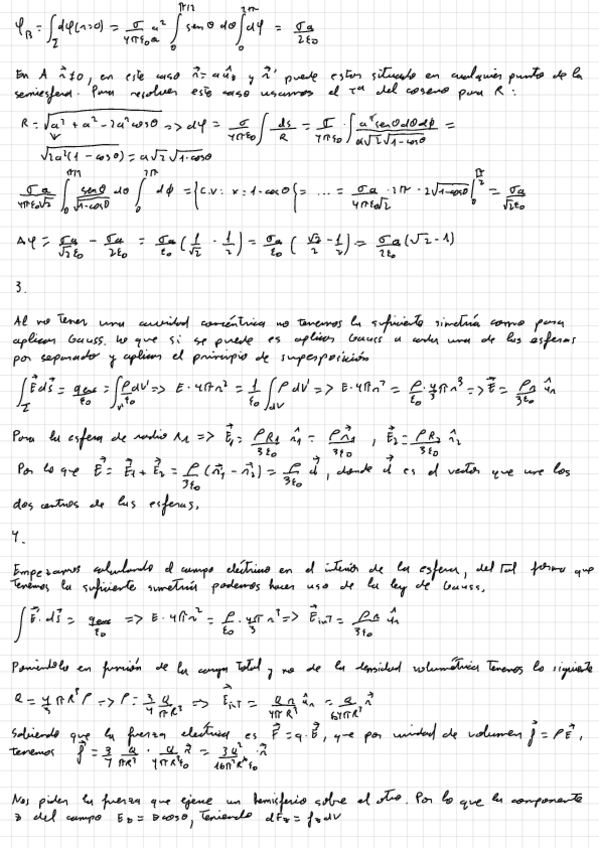 φ_B = ∫_Σ dφ(r=0) = σ/(4πε₀a) a² ∫₀^{π/2} senθ dθ ∫₀^{2π} dφ = σa/(2ε₀)
En A r⃗≠0, en este caso r⃗ = a û_z y r⃗' puede estar situado en cualquier punto de la
semiesfera. Para resolver este caso usamos el T^a del coseno para R:
R = √(a² + a² - 2a² cosθ) => dφ = σ/(4πε₀) ∫ ds/R = σ/(4πε₀) · ∫ a² senθ dθ dϕ/(a√2 √(1-cosθ)) =
√(2a²(1-cosθ)) = a√2 √(1-cosθ)
σa/(4πε₀√2) ∫₀^{π/2} senθ/√(1-cosθ) dθ ∫₀^{2π} dϕ = {C.V: x = 1-cosθ} = ... = σa/(4πε₀√2) · 2π · 2√(1-cosθ) |₀^{π/2} = σa/(√2ε₀)
Δφ = σa/(√2ε₀) - σa/(2ε₀) = σa/ε₀ (1/√2 - 1/2) = σa/ε₀ (√2/2 - 1/2) = σa/(2ε₀) (√2 - 1)
3.
Al no tener una cavidad concéntrica no tenemos la suficiente simetría como para
aplicar Gauss. Lo que si se puede es aplicar Gauss a cada una de las esferas
por separado y aplicar el principio de superposición
∫_Σ E⃗ ds⃗ = q_enc/ε₀ = ∫_V' ρ dV'/ε₀ => E · 4πr² = 1/ε₀ ∫_dV ρ dV' => E · 4πr² = ρ/ε₀ · 4/3 π r³ => E⃗ = ρr/(3ε₀) û_r
Para la esfera de radio r₁ => E⃗₁ = ρR₁/(3ε₀) r̂₁ = ρr⃗₁/(3ε₀) , E⃗₂ = ρR₂/(3ε₀) r̂₂
Por lo que E⃗ = E⃗₁ + E⃗₂ = ρ/(3ε₀) (r⃗₁ - r⃗₂) = ρ/(3ε₀) d⃗, donde d⃗ es el vector que une los
dos centros de las esferas.
4.
Empezamos calculando el campo eléctrico en el interior de la esfera, del tal forma que
tenemos la suficiente simetría podemos hacer uso de la ley de Gauss.
∫ E⃗ · ds⃗ = q_enc/ε₀ => E · 4πr² = ρ/ε₀ · 4π/3 r³ => E⃗_int = ρr/(3ε₀) û_r
Poniéndolo en función de la carga total y no de la densidad volumétrica tenemos lo siguiente
Q = 4/3 πR³ρ => ρ = 3/4 Q/(πR³) => E⃗_int = Qr/(4πR³) û_r = Q/(ε₀4πR³) r⃗
Sabiendo que la fuerza eléctrica es F⃗ = q · E⃗, que por unidad de volumen f⃗ = ρE⃗,
tenemos f⃗ = 3/4 Q/(πR³) · Q/(4πR³ε₀) r⃗ = 3Q²/(16π²R⁶ε₀) · r⃗
Nos piden la fuerza que ejerce un hemisferio sobre el otro. Por lo que la componente
z del campo E_z = E cosθ, teniendo dF_z = f_z dV